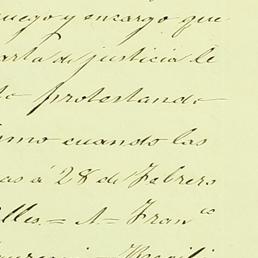 ruego y encargo que
carta de justicia le
to protestando
ismo cuando las
as á 28 de Febrero
lles.= A= Fran.co